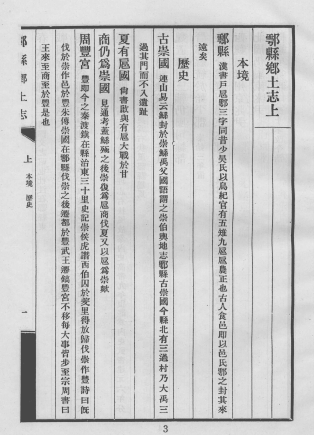 鄠縣鄉土志上
本境
鄠縣 漢書戶扈鄠三字同昔少昊氏以鳥紀官有五雉九扈扈農正也古人食邑即以邑氏鄠之封其來
遠矣
歷史
古崇國 連山易云鯀封於崇鯀禹父國語謂之崇伯輿地志鄠縣古崇國今縣北有三過村乃大禹三
過其門而不入遺趾
夏有扈國 尚書啟與有扈大戰於甘
商仍為崇國 見通考蓋鯀殛之後崇復為扈商伐夏又以扈為崇猷
周豐宮 豐即今之秦渡鎮在縣治東三十里史記崇侯虎譖西伯囚於羑里得放歸伐崇作豐詩曰既
伐於崇作邑於豐朱傳崇國在鄠縣伐崇之後遷都於豐武王遷鎬豐宮不移每大事皆步至宗周書曰
王來至商至於豐是也
鄠縣鄉土志
上 本境 歷史
一
3